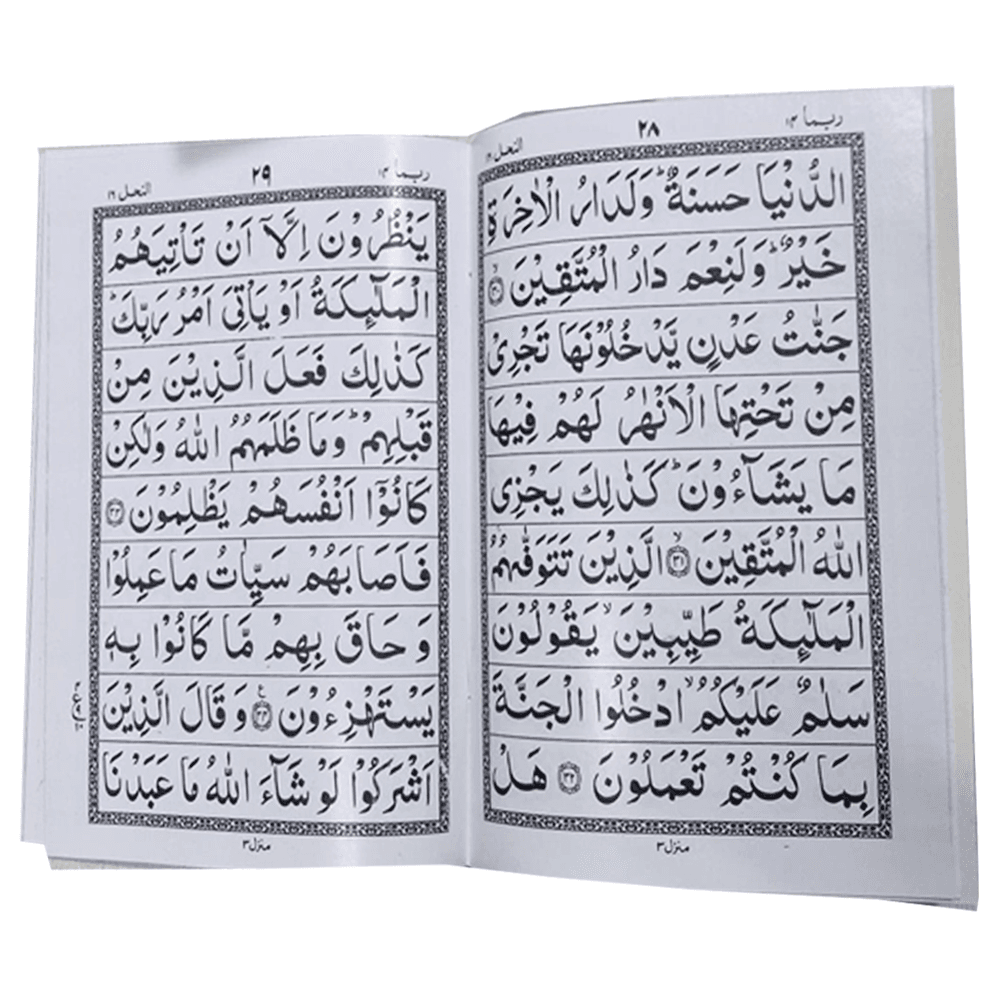 ربما ١٤
٢٨
النحل ١٦
الدُّنْيَا حَسَنَةٌ ؕ وَلَدَارُ الْاٰخِرَةِ
خَيْرٌ ؕ وَلَنِعْمَ دَارُ الْمُتَّقِيْنَ ۙ﴿٣٠﴾
جَنّٰتُ عَدْنٍ يَّدْخُلُوْنَهَا تَجْرِيْ
مِنْ تَحْتِهَا الْاَنْهٰرُ لَهُمْ فِيْهَا
مَا يَشَآءُوْنَ ؕ كَذٰلِكَ يَجْزِى
اللهُ الْمُتَّقِيْنَ ۙ﴿٣١﴾ الَّذِيْنَ تَتَوَفّٰىهُمُ
الْمَلٰٓئِكَةُ طَيِّبِيْنَ ۙ يَقُوْلُوْنَ
سَلٰمٌ عَلَيْكُمُ ۙ ادْخُلُوا الْجَنَّةَ
بِمَا كُنْتُمْ تَعْمَلُوْنَ ﴿٣٢﴾ هَلْ
منزل ٣
ربما ١٤
٢٩
النحل ١٦
يَنْظُرُوْنَ اِلَّاۤ اَنْ تَاْتِيَهُمُ
الْمَلٰٓئِكَةُ اَوْ يَاْتِيَ اَمْرُ رَبِّكَ ؕ
كَذٰلِكَ فَعَلَ الَّذِيْنَ مِنْ
قَبْلِهِمْ ؕ وَمَا ظَلَمَهُمُ اللهُ وَلٰكِنْ
كَانُوْۤا اَنْفُسَهُمْ يَظْلِمُوْنَ ﴿٣٣﴾
فَاَصَابَهُمْ سَيِّاٰتُ مَا عَمِلُوْا
وَحَاقَ بِهِمْ مَّا كَانُوْا بِهٖ
يَسْتَهْزِءُوْنَ ﴿٣٤﴾ وَقَالَ الَّذِيْنَ
اَشْرَكُوْا لَوْ شَآءَ اللهُ مَا عَبَدْنَا
منزل ٣